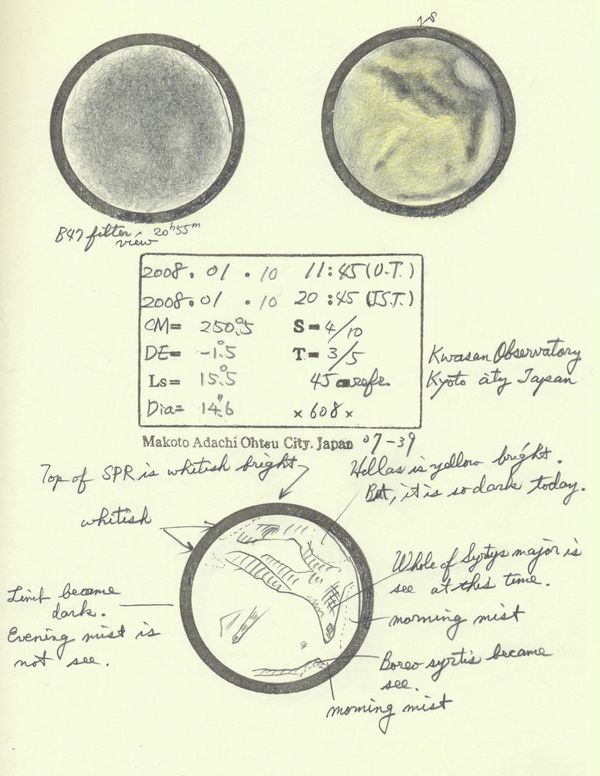 18
B47 filter 20ʰ55ᵐ
view
2008. 01. 10 11:45 (U.T.)
2008. 01. 10 20:45 (J.S.T.)
CM= 250.°5 S=4/10
DE= -1.°5 T=3/5
Ls= 15.°5 45 refr.
Dia= 14."6 ×608×
Kwasan Observatory
Kyoto city Japan
Makoto Adachi Ohtsu City, Japan 07-39
Top of SPR is whitish bright
Hellas is yellow bright.
But, it is so dark today.
whitish
Whole of Syrtys major is
see at this time.
Limb became
dark.
Evening mist is
not see.
morning mist
Boreo syrtis became
see.
morning mist